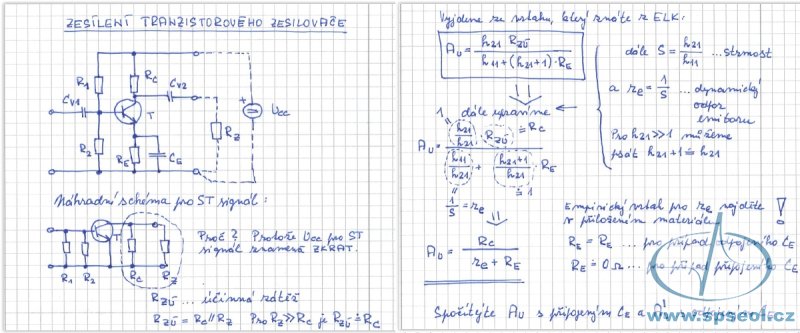 ZESÍLENÍ TRANZISTOROVÉHO ZESILOVAČE
R1
RC
CV2
CV1
T
+
UCC
RZ
R2
RE
CE
Náhradní schéma pro ST signál:
T
R1 R2 RC RZ
Proč? Protože UCC pro ST
signál znamená ZKRAT.
RZÚ ... účinná zátěž
RZÚ = RC // RZ Pro RZ >> RC je RZÚ ≐ RC
Vyjdeme ze vztahu, který znáte z ELK:
AU = h21 · RZÚ / (h11 + (h21+1) · RE)
dále S = h21 / h11 ... strmost
a re = 1 / S ... dynamický
odpor
emitoru
Pro h21 >> 1 můžeme
psát h21 + 1 ≐ h21
dále upravíme
AU = (h21 / h21 · RZÚ) / (h11 / h21 + (h21+1) / h21 · RE)
1
≐ RC
1 / S = re
≐ 1
AU = RC / (re + RE)
Empirický vztah pro re najdete
v přiloženém materiálu.
!
RE = RE ... pro případ odpojeného CE
RE ≐ 0 Ω ... pro případ připojeného CE
Spočítejte AU s připojeným CE a A'U
www.spseol.cz